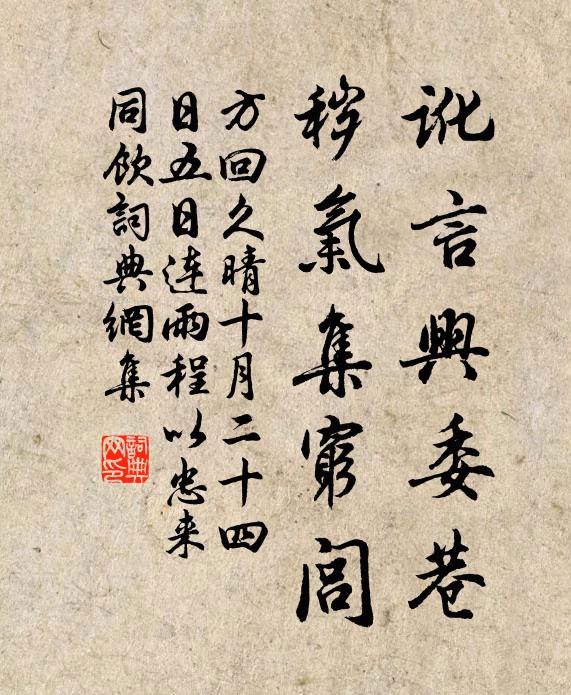 訛言興委巷
穢氣集窮閭
方回久晴十月二十四
日五日連雨程以忠来
同飲詞典網集
詞典
网印